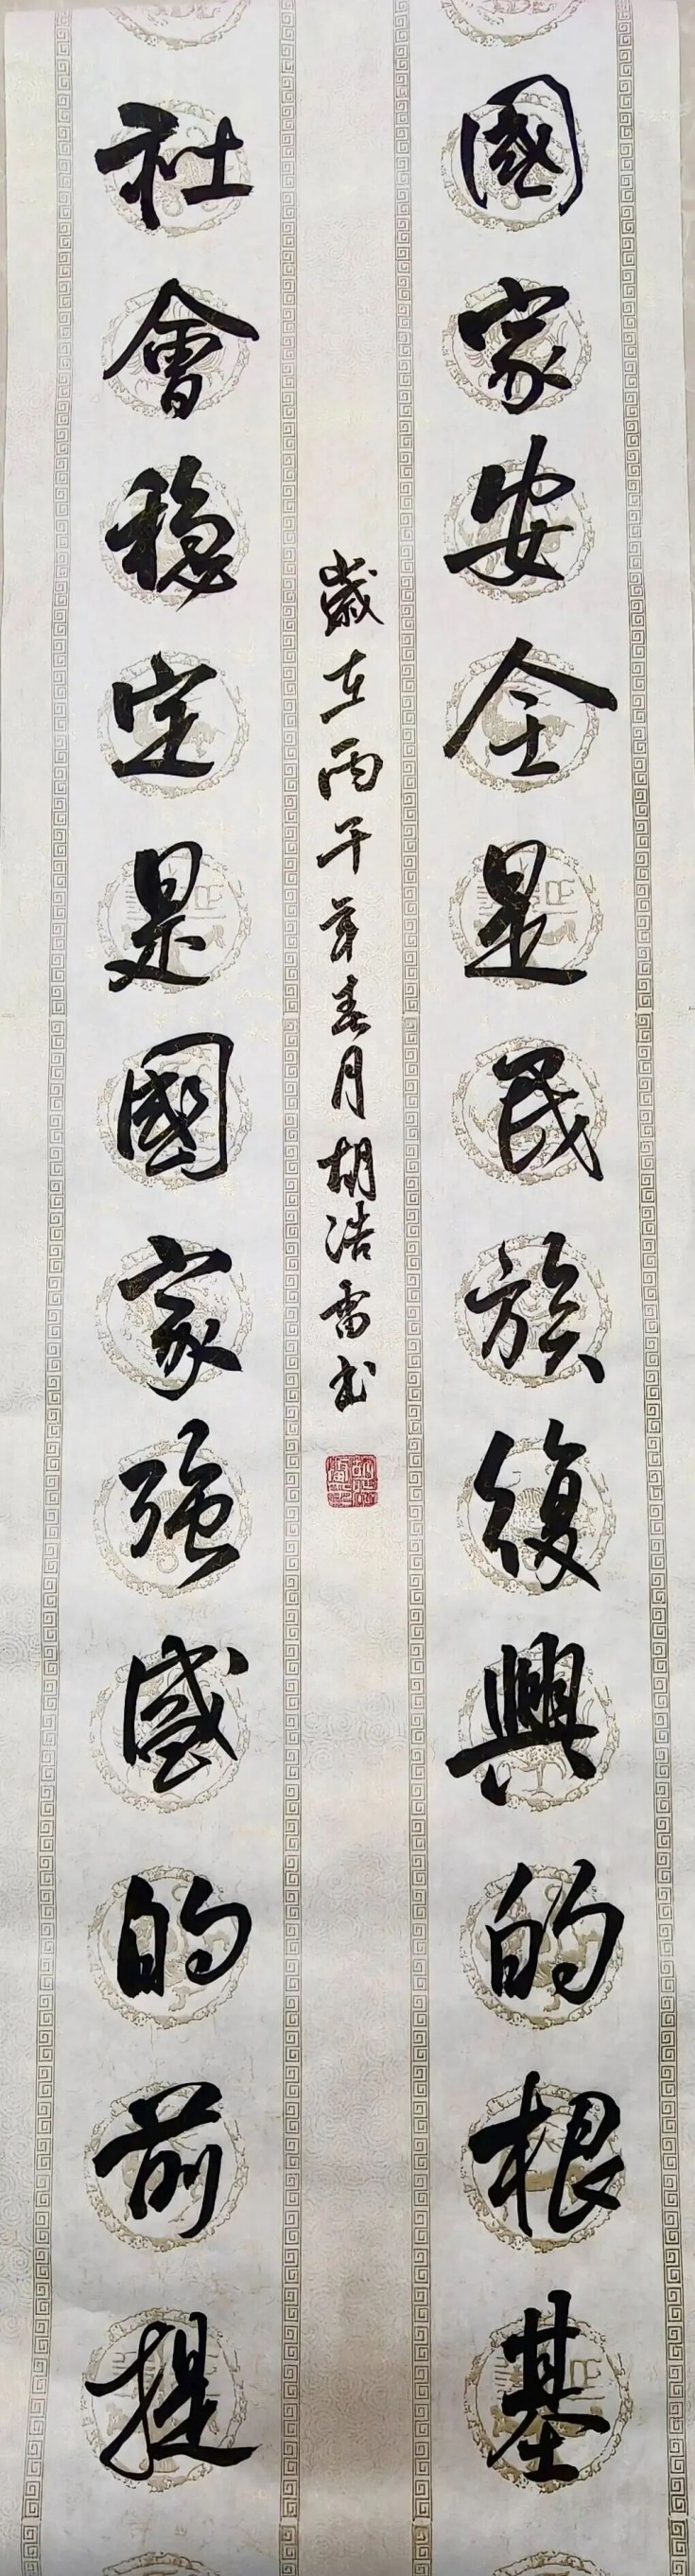 國家安全是民族復興的根基
社會穩定是國家強盛的前提
歲在丙午年春月胡浩雷書